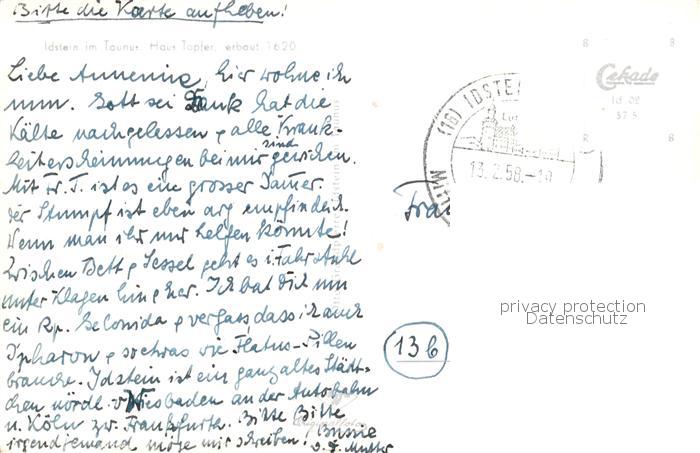 Bitte die Karte aufheben!
Idstein im Taunus. Haus Töpfer, erbaut 1620
Liebe Annemie, hier wohne ich
nun. Gott sei Dank hat die
Kälte nachgelassen & alle Krank-
heitserscheinungen bei mir sind gewichen.
Mit Fr. T. ist es ein grosser Jammer.
Der Stumpf ist eben arg empfindlich.
Wenn man ihr nur helfen könnte!
Zwischen Bett & Sessel geht es i. Fahrstuhl
unter Klagen hin & her. Ich bat Dich um
ein Rp. & vergass, dass ich auch
& sowas wie Flatus-Pillen
brauche. Idstein ist ein ganz altes Städt-
chen nördl. v Wiesbaden an der Autobahn
n. Köln zw. Frankfurth. Bitte Bitte
irgendjemand möge mir schreiben!
Mutter
(16) IDSTEIN
13.2.58.-19
Frau
13b
Cekade
Id 02
privacy protection
Datenschutz